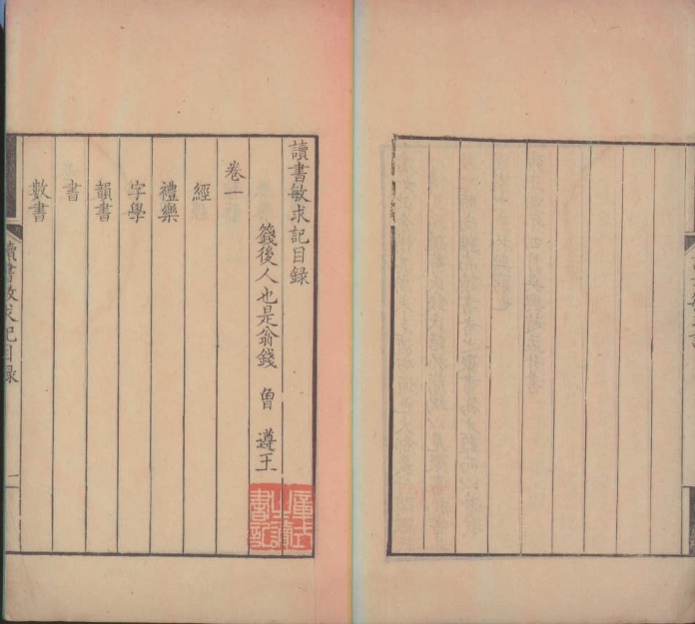 讀書敏求記目録
籛後人也是翁錢 曾 遵王
卷一
經
禮樂
字學
韻書
書
數書
讀書敏求記目録
一